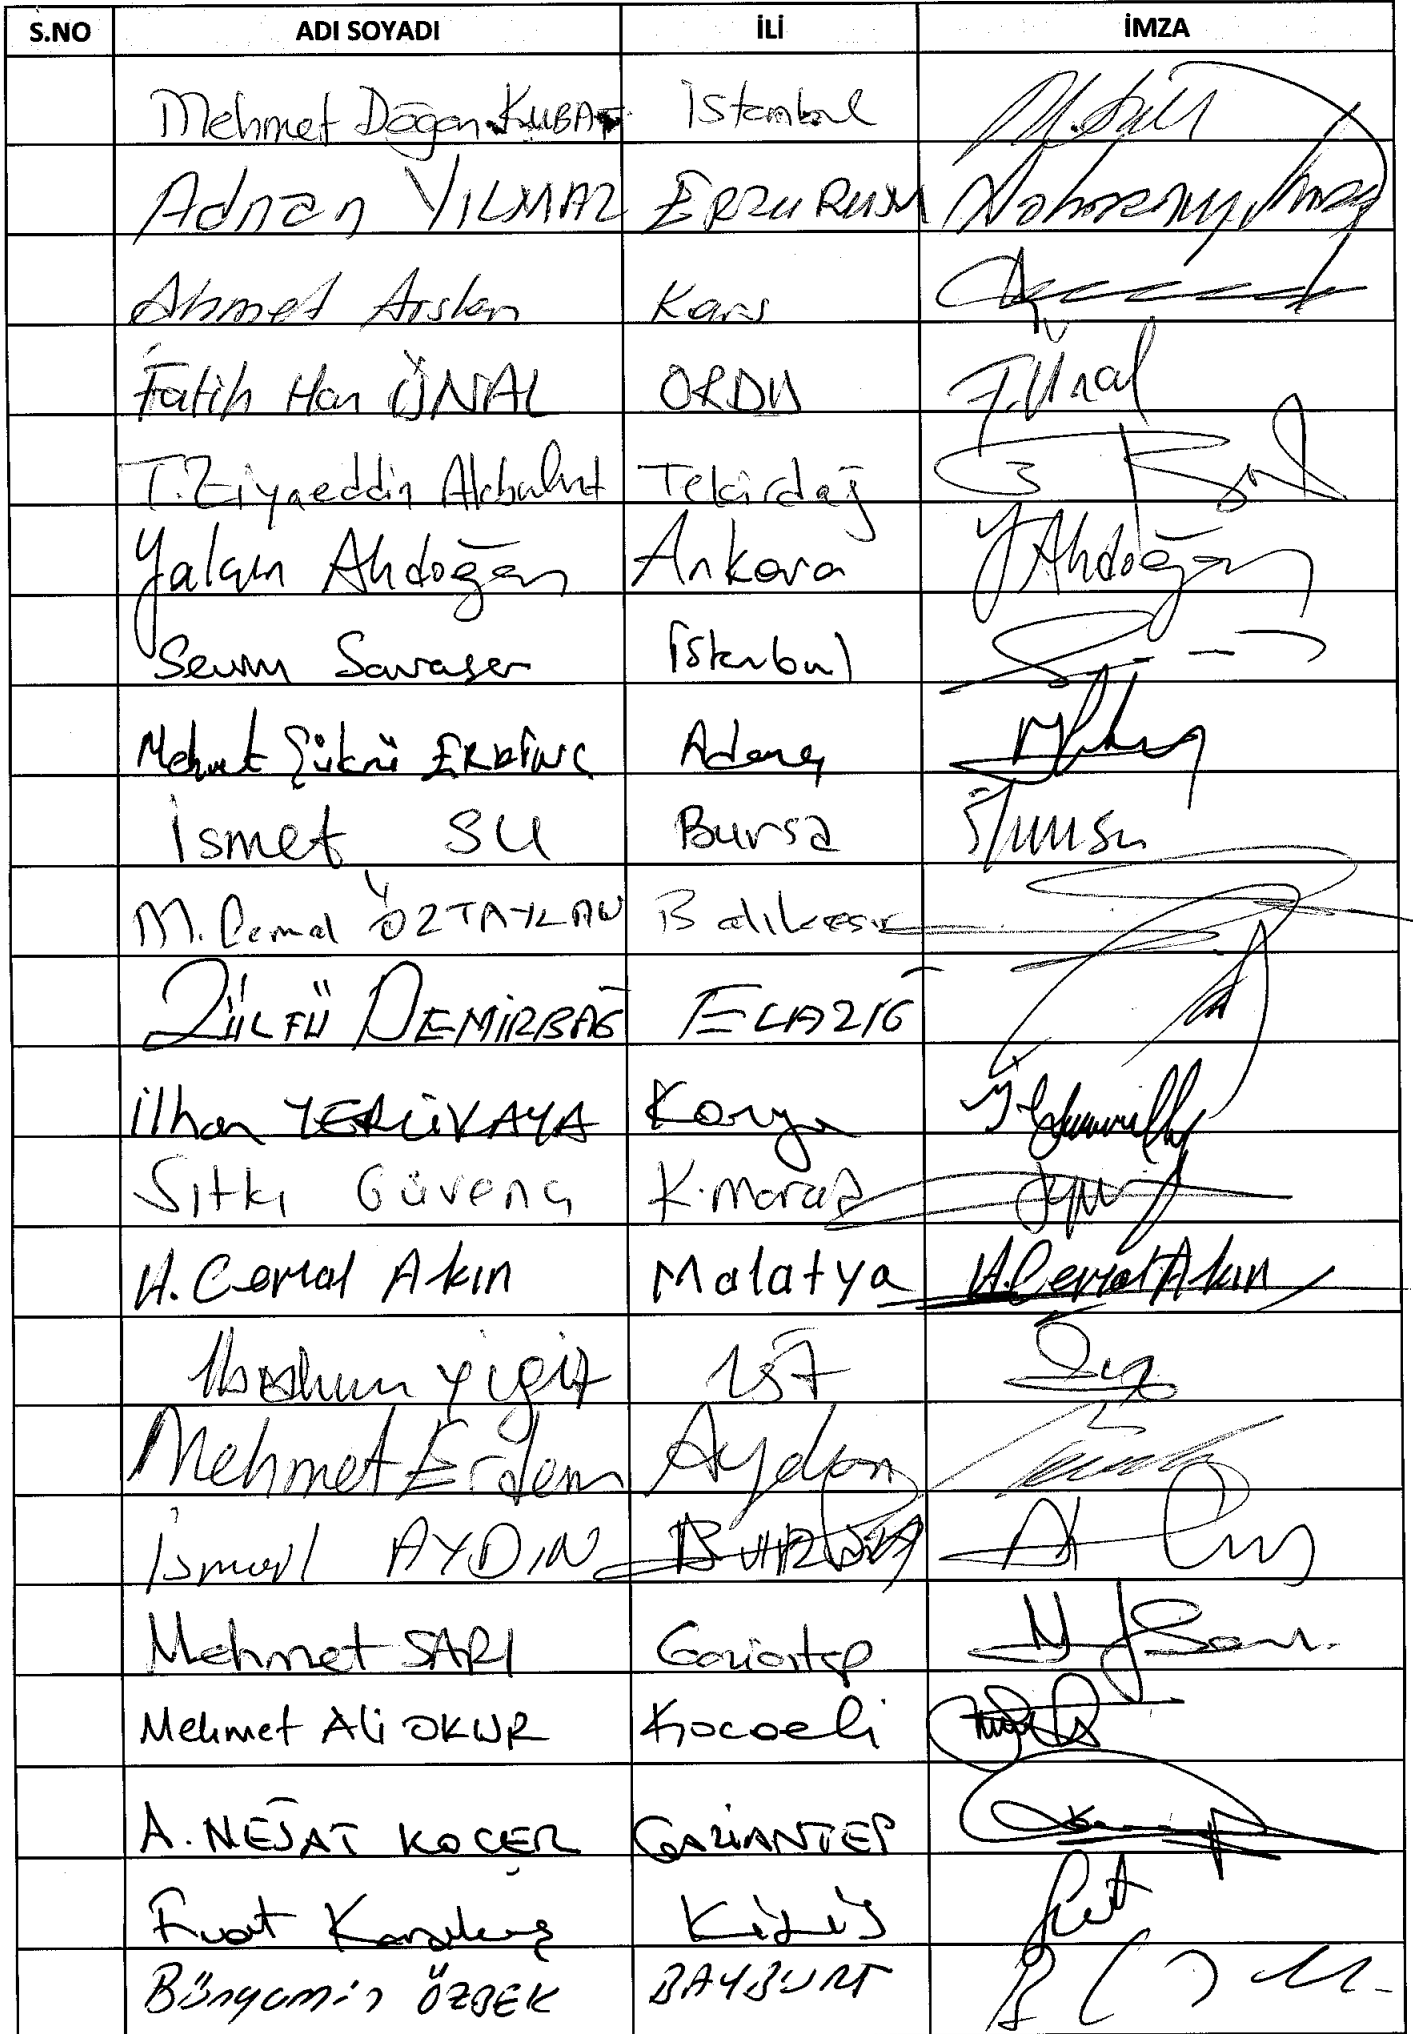 S.NO ADI SOYADI İLİ İMZA
Mehmet Doğan KUBAT İstanbul
Adnan YILMAZ ERZURUM
Ahmet Arslan Kars
Fatih Han ÜNAL ORDU F.Ünal
T.Ziyaeddin Akbulut Tekirdağ
Yalçın Akdoğan Ankara Y Akdoğan
Sevim Savaşer İstanbul
Mehmet Şükrü ERDİNÇ Adana
İsmet SU Bursa
M. Cemal ÖZTAYLAN Balıkesir
ZÜLFÜ DEMİRBAĞ ELAZIĞ
İlhan YERLİKAYA Konya
Sıtkı Güvenç K.maraş
H. Cemal Akın Malatya H.Cemal Akın
İbrahim Yiğit İST
Mehmet Erdem Aydın
İsmail AYDIN BURSA
Mehmet SARI Gaziantep
Mehmet Ali OKUR Kocaeli
A. NEJAT KOÇER GAZİANTEP
Fuat Karakuş KİLİS
Bünyamin ÖZBEK BAYBURT